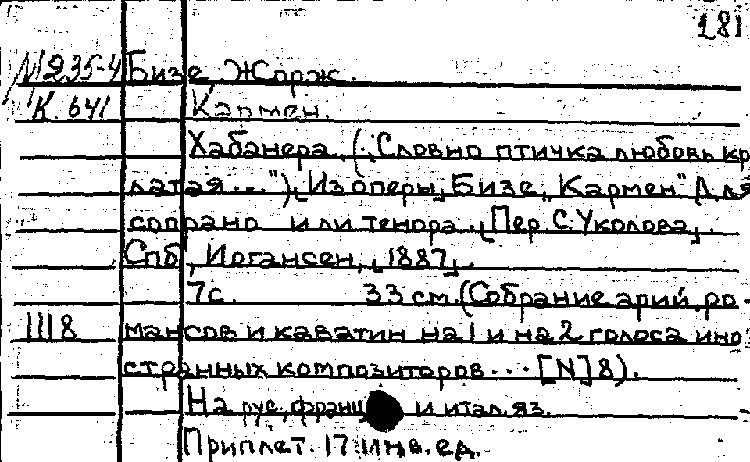 181
М 235-4 Бизе Жорж.
К. 641 Кармен.
Хабанера. („Словно птичка любовь кр
латая..."), Из оперы Бизе „Кармен" Для
сопрано или тенора. [Пер. С. Уколова].
Спб, Иогансен, [1887].
7с. 33 см. (Собрание арий, ро-
1118 мансов и каватин на 1 и на 2 голоса ино
странных композиторов... [N] 8).
На рус, франц и итал. яз.
Приплет. 17 инв. ед.